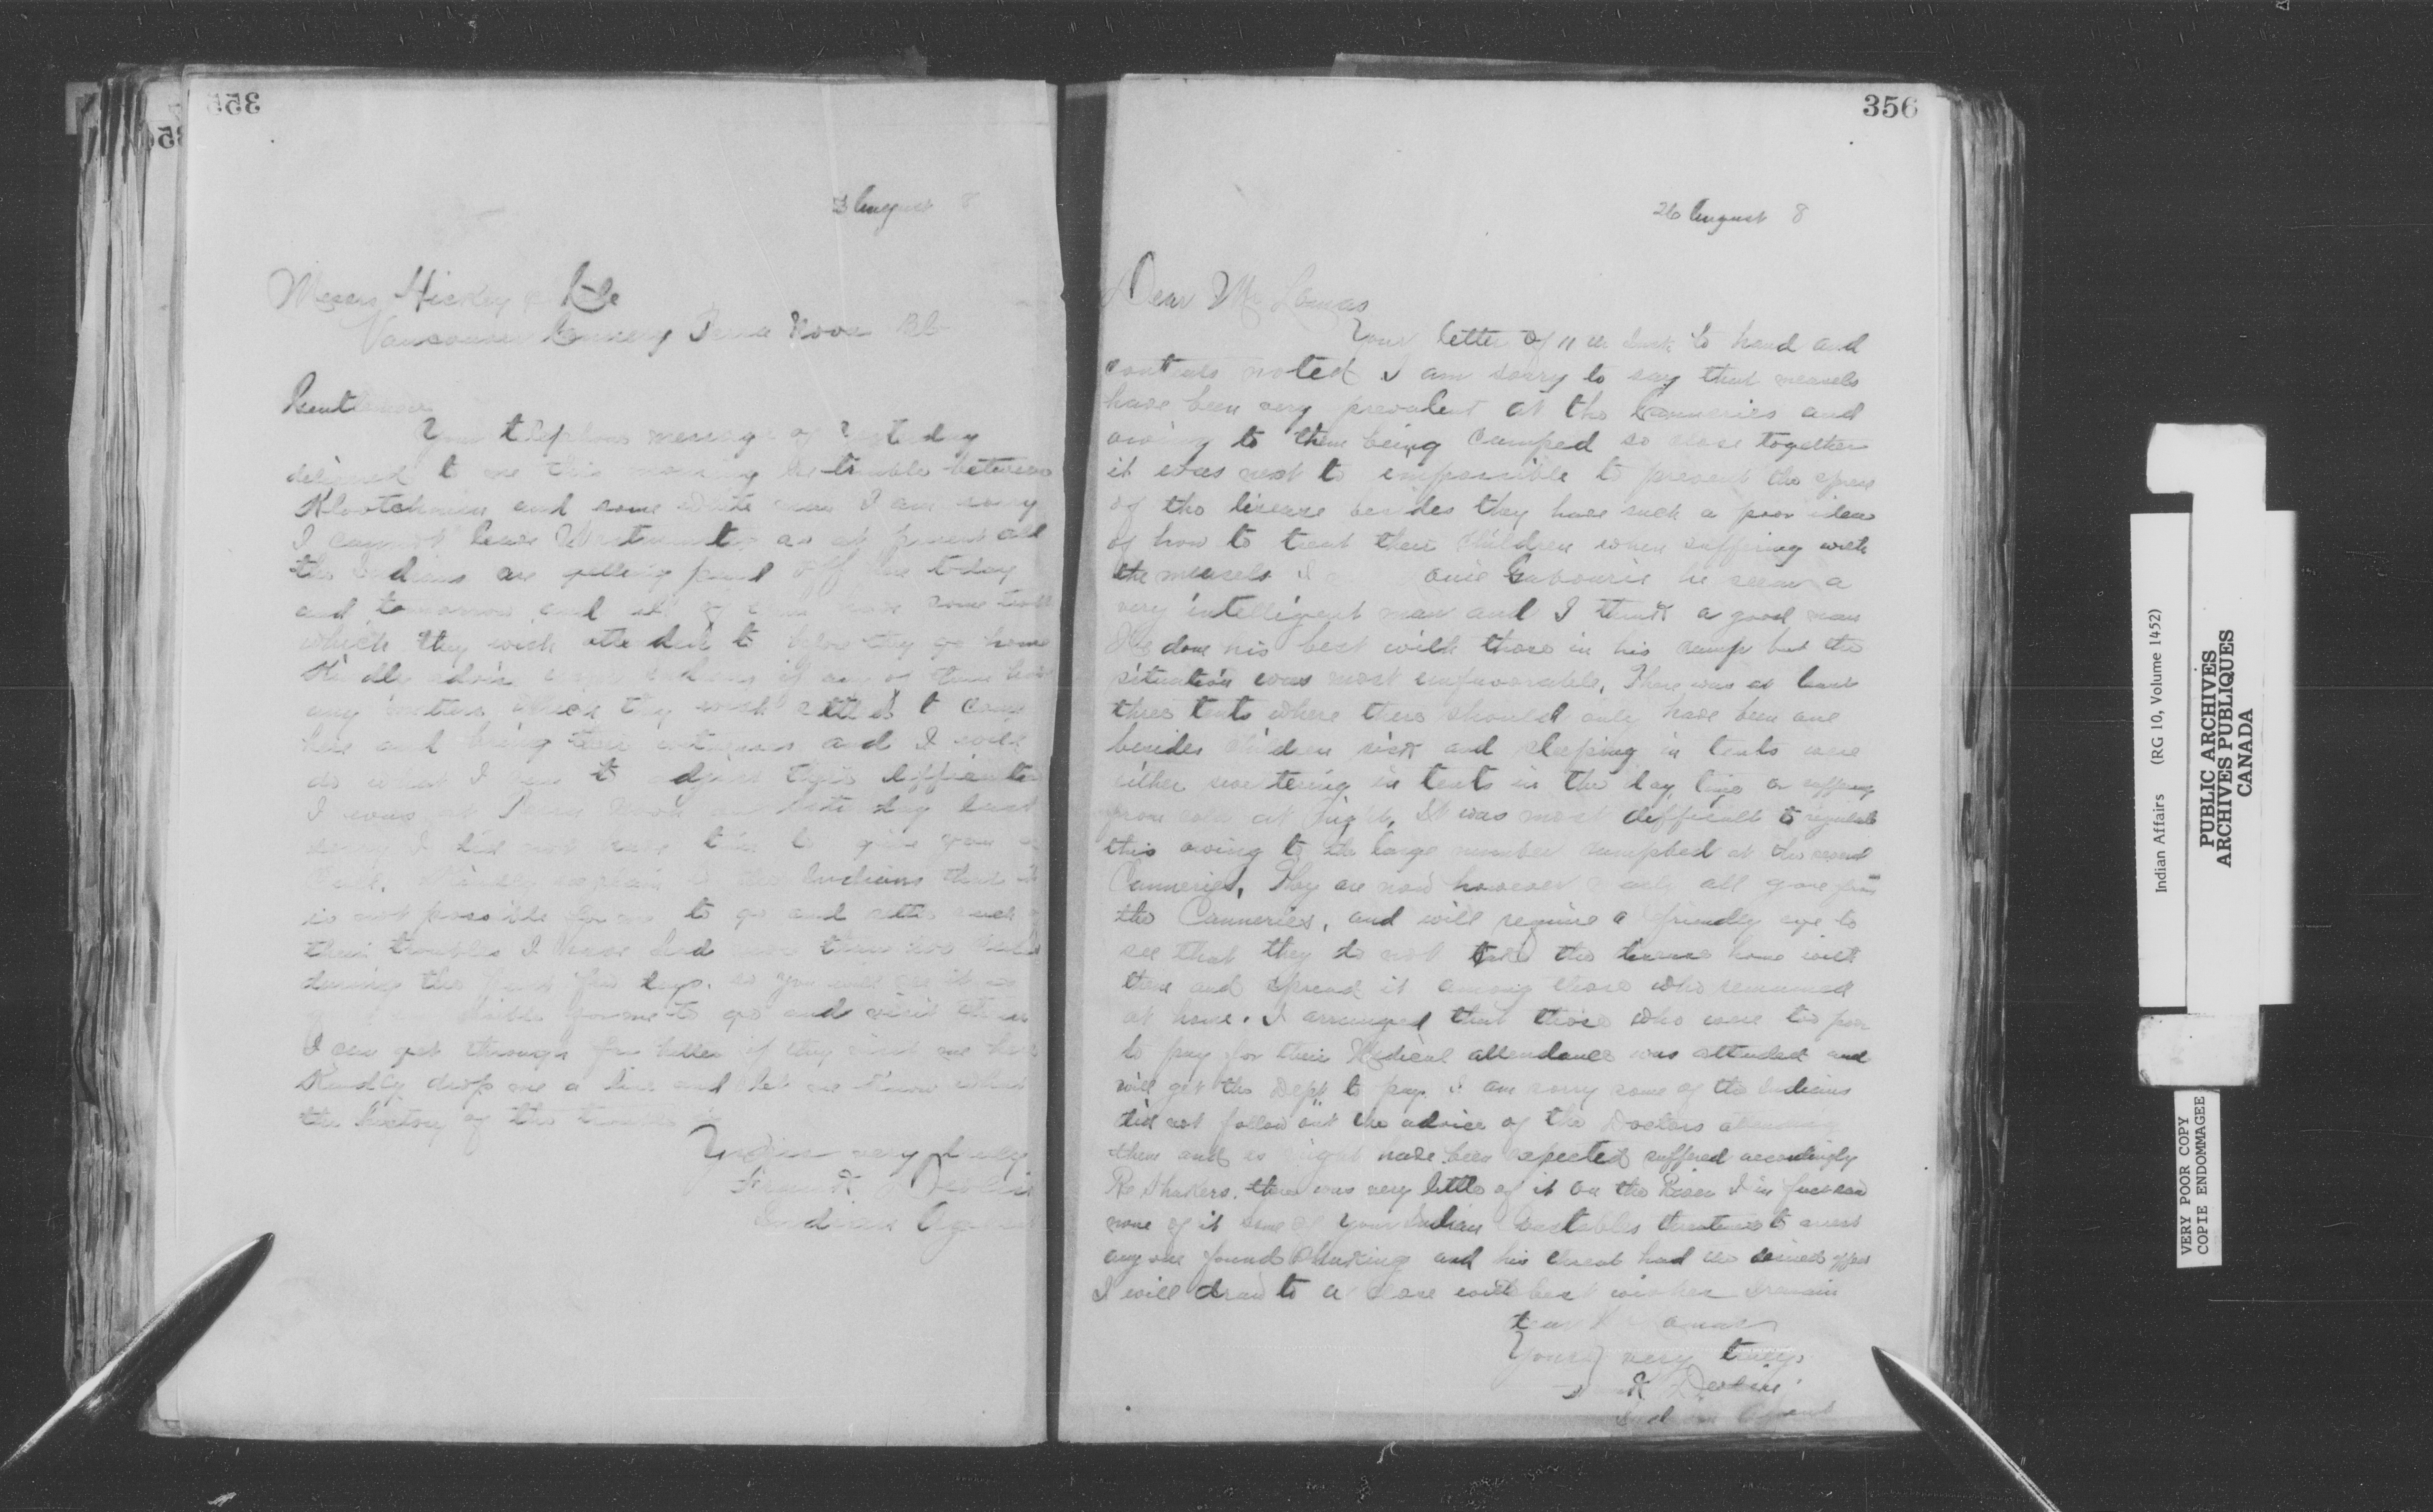 355
3 August 8
Messrs Hickey &
Vancouver Cannery Terra Nova
Gentlemen
Your telephone message of yesterday
delivered to me this morning the trouble between
Klootchmen and some white men I am sorry
I cannot leave Westminster as at present all
the Indians are getting paid off here today
and tomorrow and all of them have some
which they wish attended to before they go home
Kindly advise Indians if any of them have
any matters which they wish to come
here and bring their witnesses and I will
do what I can to adjust their difficulties
I was at Terra Nova on last
I did not have time to give you a
call. Kindly explain to the Indians that it
is not possible for me to go and settle such
their troubles I have had more than two
during the past few days. so you will see it is
for me to go and visit them
I can get through far better if they visit me here
Kindly drop me a line and let me know what
the history of the trouble is
Yours very truly
Frank Devlin
Indian Agent
356
26 August 8
Dear Mr Lomas
Your letter of 11th Inst to hand and
contents noted I am sorry to say that measels
have been very prevalent at the Canneries and
owing to them being camped so close together
it was next to impossible to prevent the spread
of the disease besides they have such a poor idea
of how to treat their children when suffering with
the measels I he seems a
very intelligent man and I think a good man
He done his best with those in his camp but the
situation was most unfavorable. There was at least
three tents where there should only have been one
besides children sick and sleeping in tents were
either sweltering in tents in the day time or suffering
from cold at night. It was most difficult to regulate
this owing to the large number camped at the
Canneries. They are now however nearly all gone from
the Canneries, and will require a friendly eye to
see that they do not take the disease home with
them and spread it among those who remained
at home. I arranged that those who were too poor
to pay for their Medical attendance was attended and
will get the Dept to pay. I am sorry some of the Indians
did not follow out the advice of the Doctors attending
them and as might have been expected suffered accordingly
Re Shakers. there was very little of it on the River I in fact saw
none of it some of your Indian Constables threatened to arrest
any one found Shaking and his threat had the desired effect
I will draw to a close with best wishes I remain
Yours very truly
Devlin
Indian Agent
Indian Affairs (RG 10, Volume 1452)
PUBLIC ARCHIVES
ARCHIVES PUBLIQUES
CANADA
VERY POOR COPY
COPIE ENDOMMAGEE